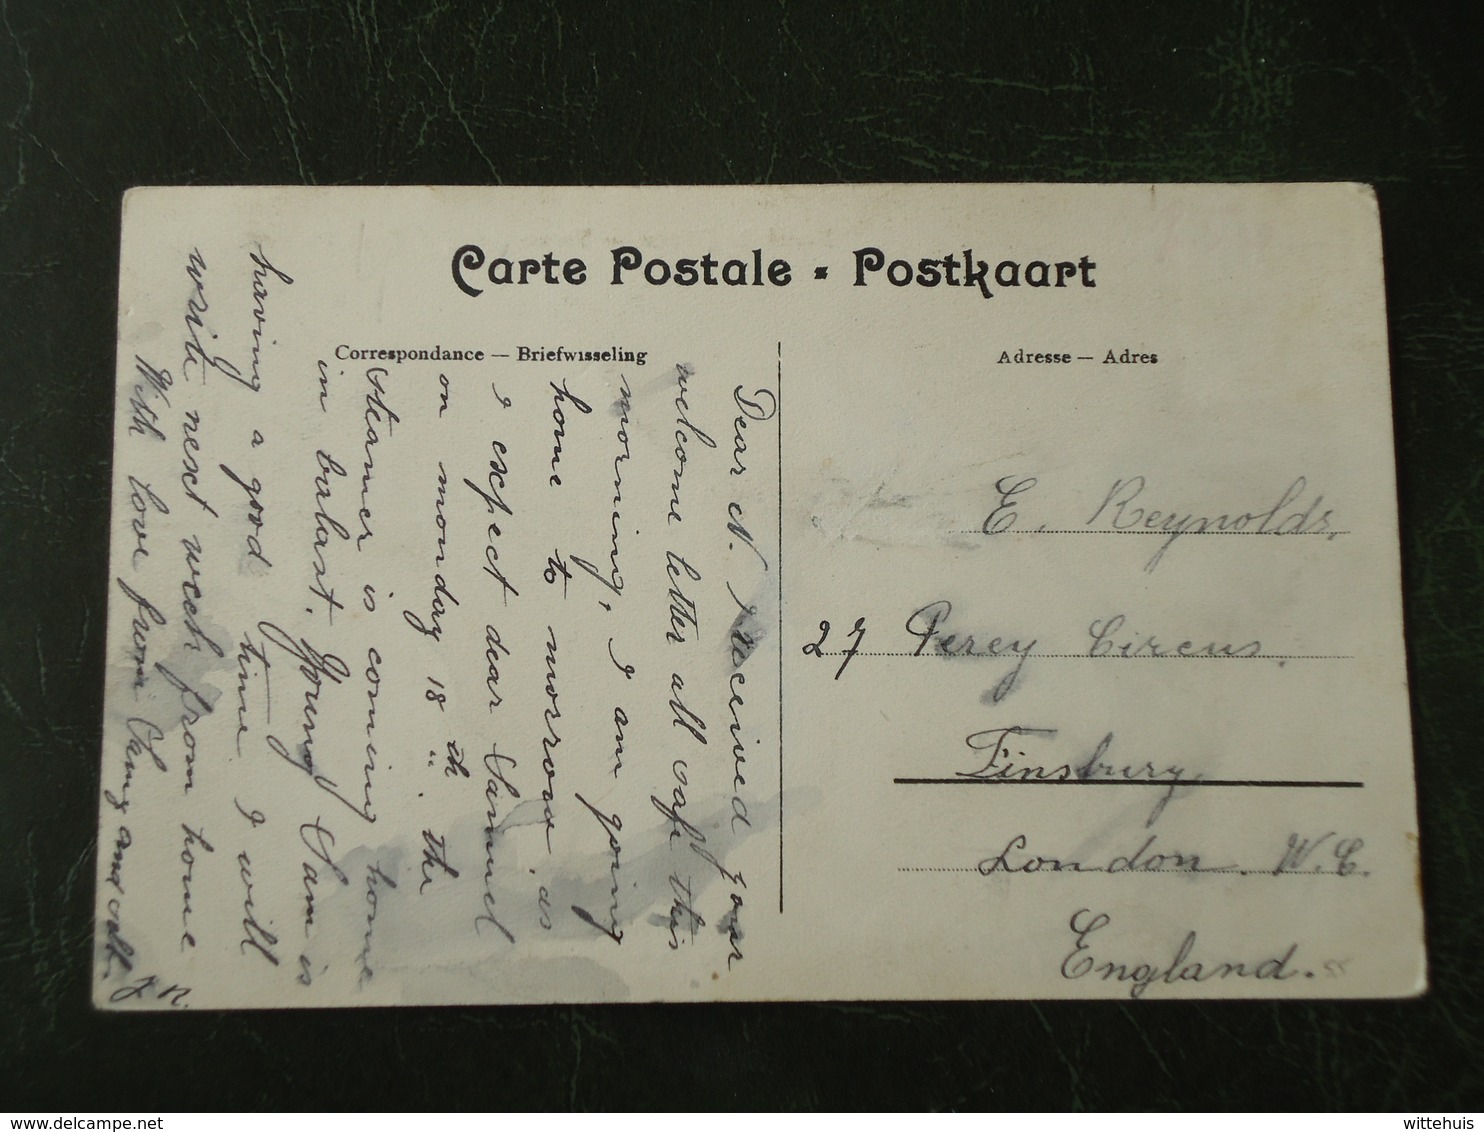 Carte Postale - Postkaart
Correspondance — Briefwisseling
Adresse — Adres
Dear N. I received your
welcome letter all safe this
morning, I am going
home to morrow, as
I expect dear Samuel
on monday 18th. the
steamer is coming home
in balast. Young Sam is
having a good time I will
write next week from home
With love from Samy and
J R.
E. Reynolds.
27 Percy Circus.
Finsbury
London. W.C.
England.
wittehuis